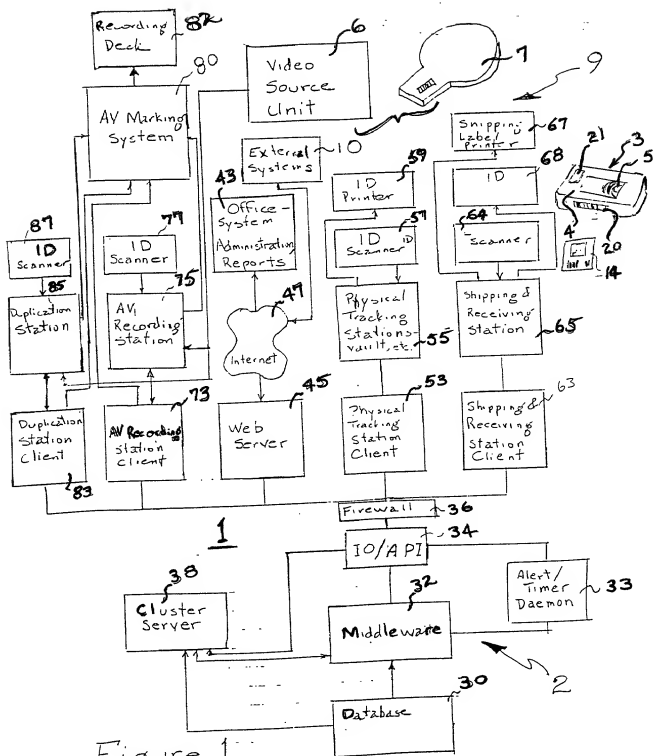 Recording
Deck
82
80
AV Marking
System
6
Video
Source
Unit
7
9
Shipping
Label
Printer
67
21
3
5
68
ID
4
20
14
External
Systems
10
43
Office-
System
Administration
Reports
59
ID
Printer
57
ID
Scanner
ID
64
Scanner
87
ID
Scanner
77
ID
Scanner
85
Duplication
Station
75
AV
Recording
Station
47
Internet
Physical
Tracking
Stations-
vault, etc.
55
Shipping &
Receiving
Station
65
73
45
53
63
Duplication
Station
Client
83
AV Recording
Station
Client
Web
Server
Physical
Tracking
Station
Client
Shipping &
Receiving
Station
Client
Firewall
36
1
34
IO/API
38
Cluster
Server
32
Middleware
Alert/
Timer
Daemon
33
2
30
Database
Figure 1